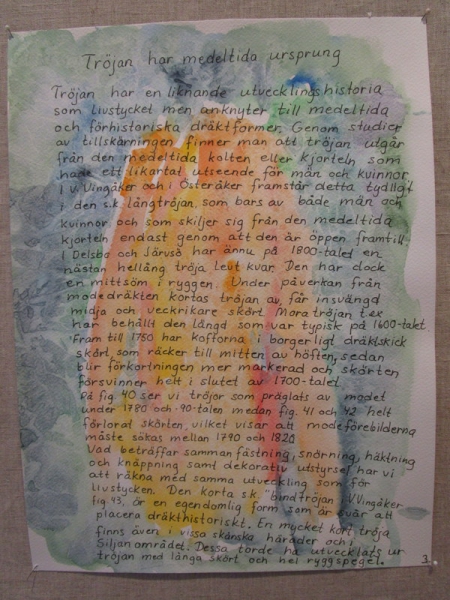 Tröjan har medeltida ursprung
Tröjan har en liknande utvecklingshistoria
som livstycket men anknyter till medeltida
och förhistoriska dräktformer. Genom studier
av tillskärningen finner man att tröjan utgår
från den medeltida kolten eller kjorteln som
hade ett likartat utseende för män och kvinnor.
I V. Vingåker och i Österåker framstår detta tydligt
i den s.k. långtröjan, som bars av både män och
kvinnor och som skiljer sig från den medeltida
kjorteln endast genom att den är öppen framtill.
I Delsbo och Järvsö har ännu på 1800-talet en
nästan hellång tröja levt kvar. Den har dock
en mittsöm i ryggen. Under påverkan från
modedräkten kortas tröjan av, får insvängd
midja och veckrikare skört. Moratröjan t.ex
har behållt den längd som var typisk på 1600-talet.
Fram till 1750 har koftorna i borgerligt dräktskick
skört, som räcker till mitten av höften, sedan
blir förkortningen mer markerad och skörten
försvinner helt i slutet av 1700-talet.
På fig. 40 ser vi tröjor som präglats av modet
under 1780 och -90-talen medan fig. 41 och 42 helt
förlorat skörten, vilket visar att modeförebilderna
måste sökas mellan 1790 och 1820
Vad beträffar sammanfästning, snörning, häktning
och knäppning samt dekorativ utstyrsel har vi
att räkna med samma utveckling som för
livstycken. Den korta s.k. "bindtröjan V. Vingåker
fig. 43, är en egendomlig form som är svår att
placera dräkthistoriskt. En mycket kort tröja
finns även i vissa skånska härader och i
Siljanområdet. Dessa torde ha utvecklats ur
tröjan med långa skört och hel ryggspegel. 3.